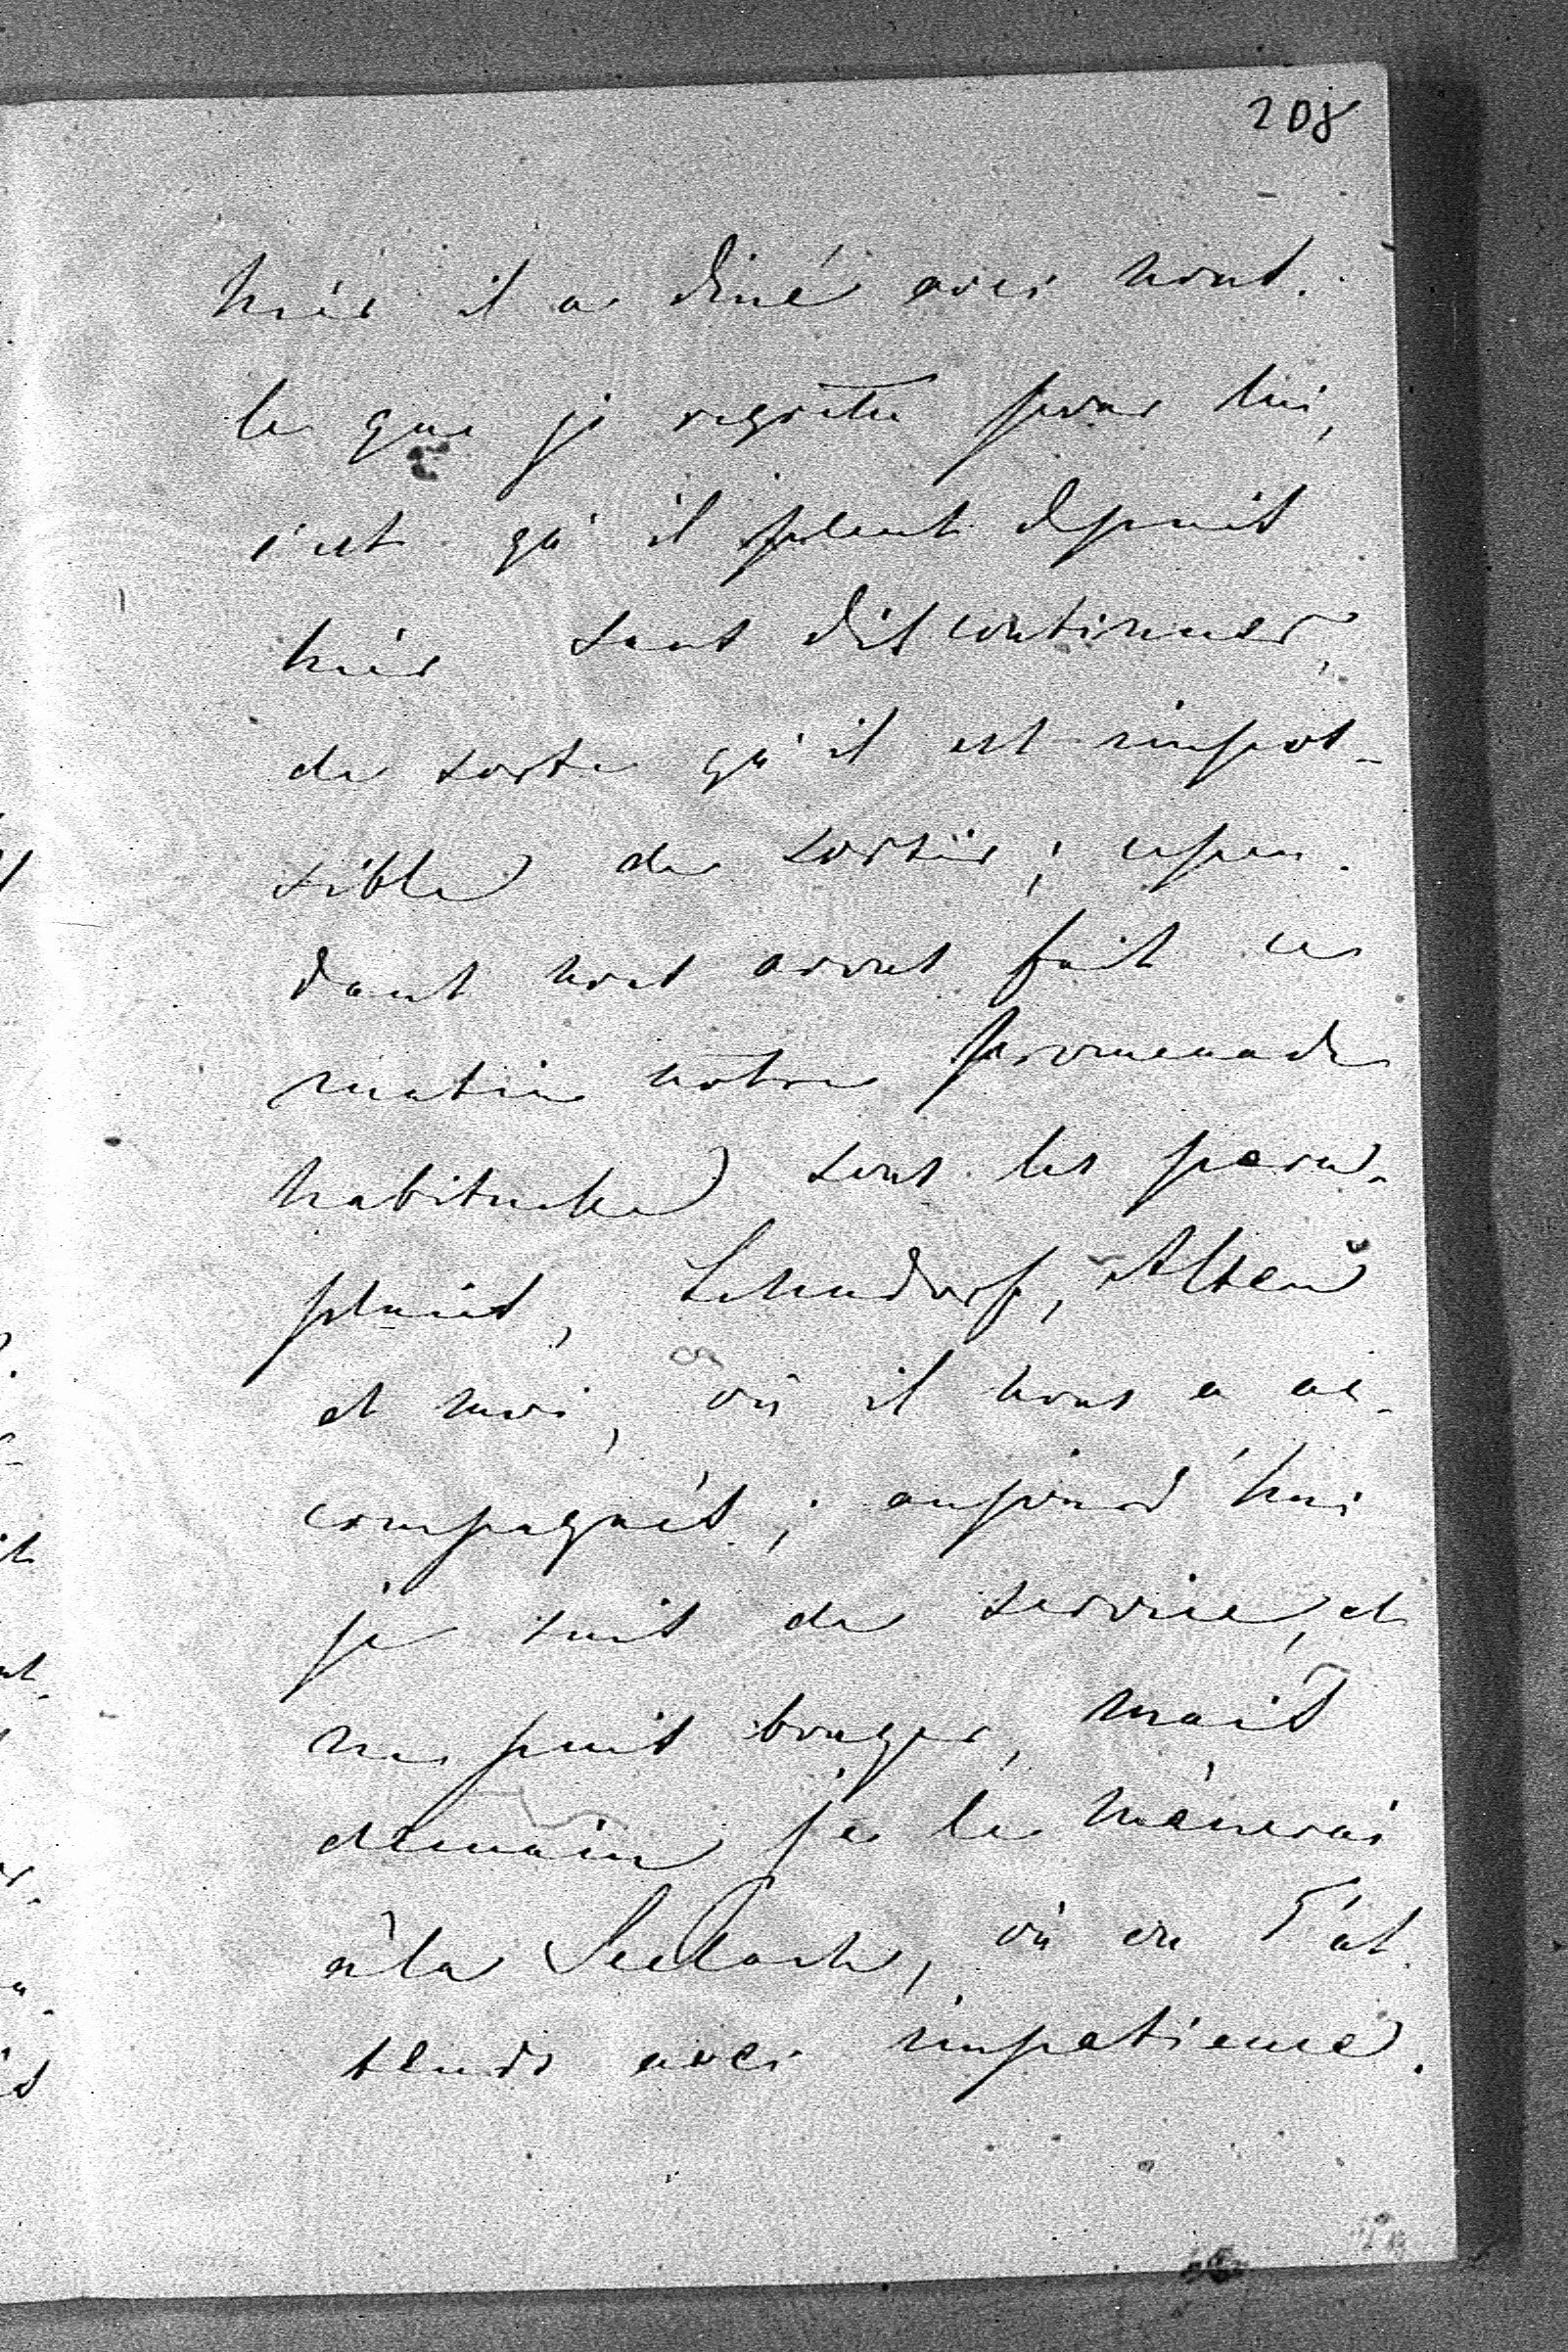 208
hier il a diné avec nous.
Ce que je regrette pour lui,
c'est qu'il pleut depuis
hier sans discontinuer,
de sorte qu'il est impos-
sible de sortir; cepen-
dant nous avons fait ce
matin notre promenade
habituelle sous les para-
pluies, Lehndorf, Alten
et moi, où il nous a ac-
compagnés; aujourd'hui
je suis de service, et
ne puis bouger, mais
demain je le mènerai
à la où on l'at
tends avec impatience.